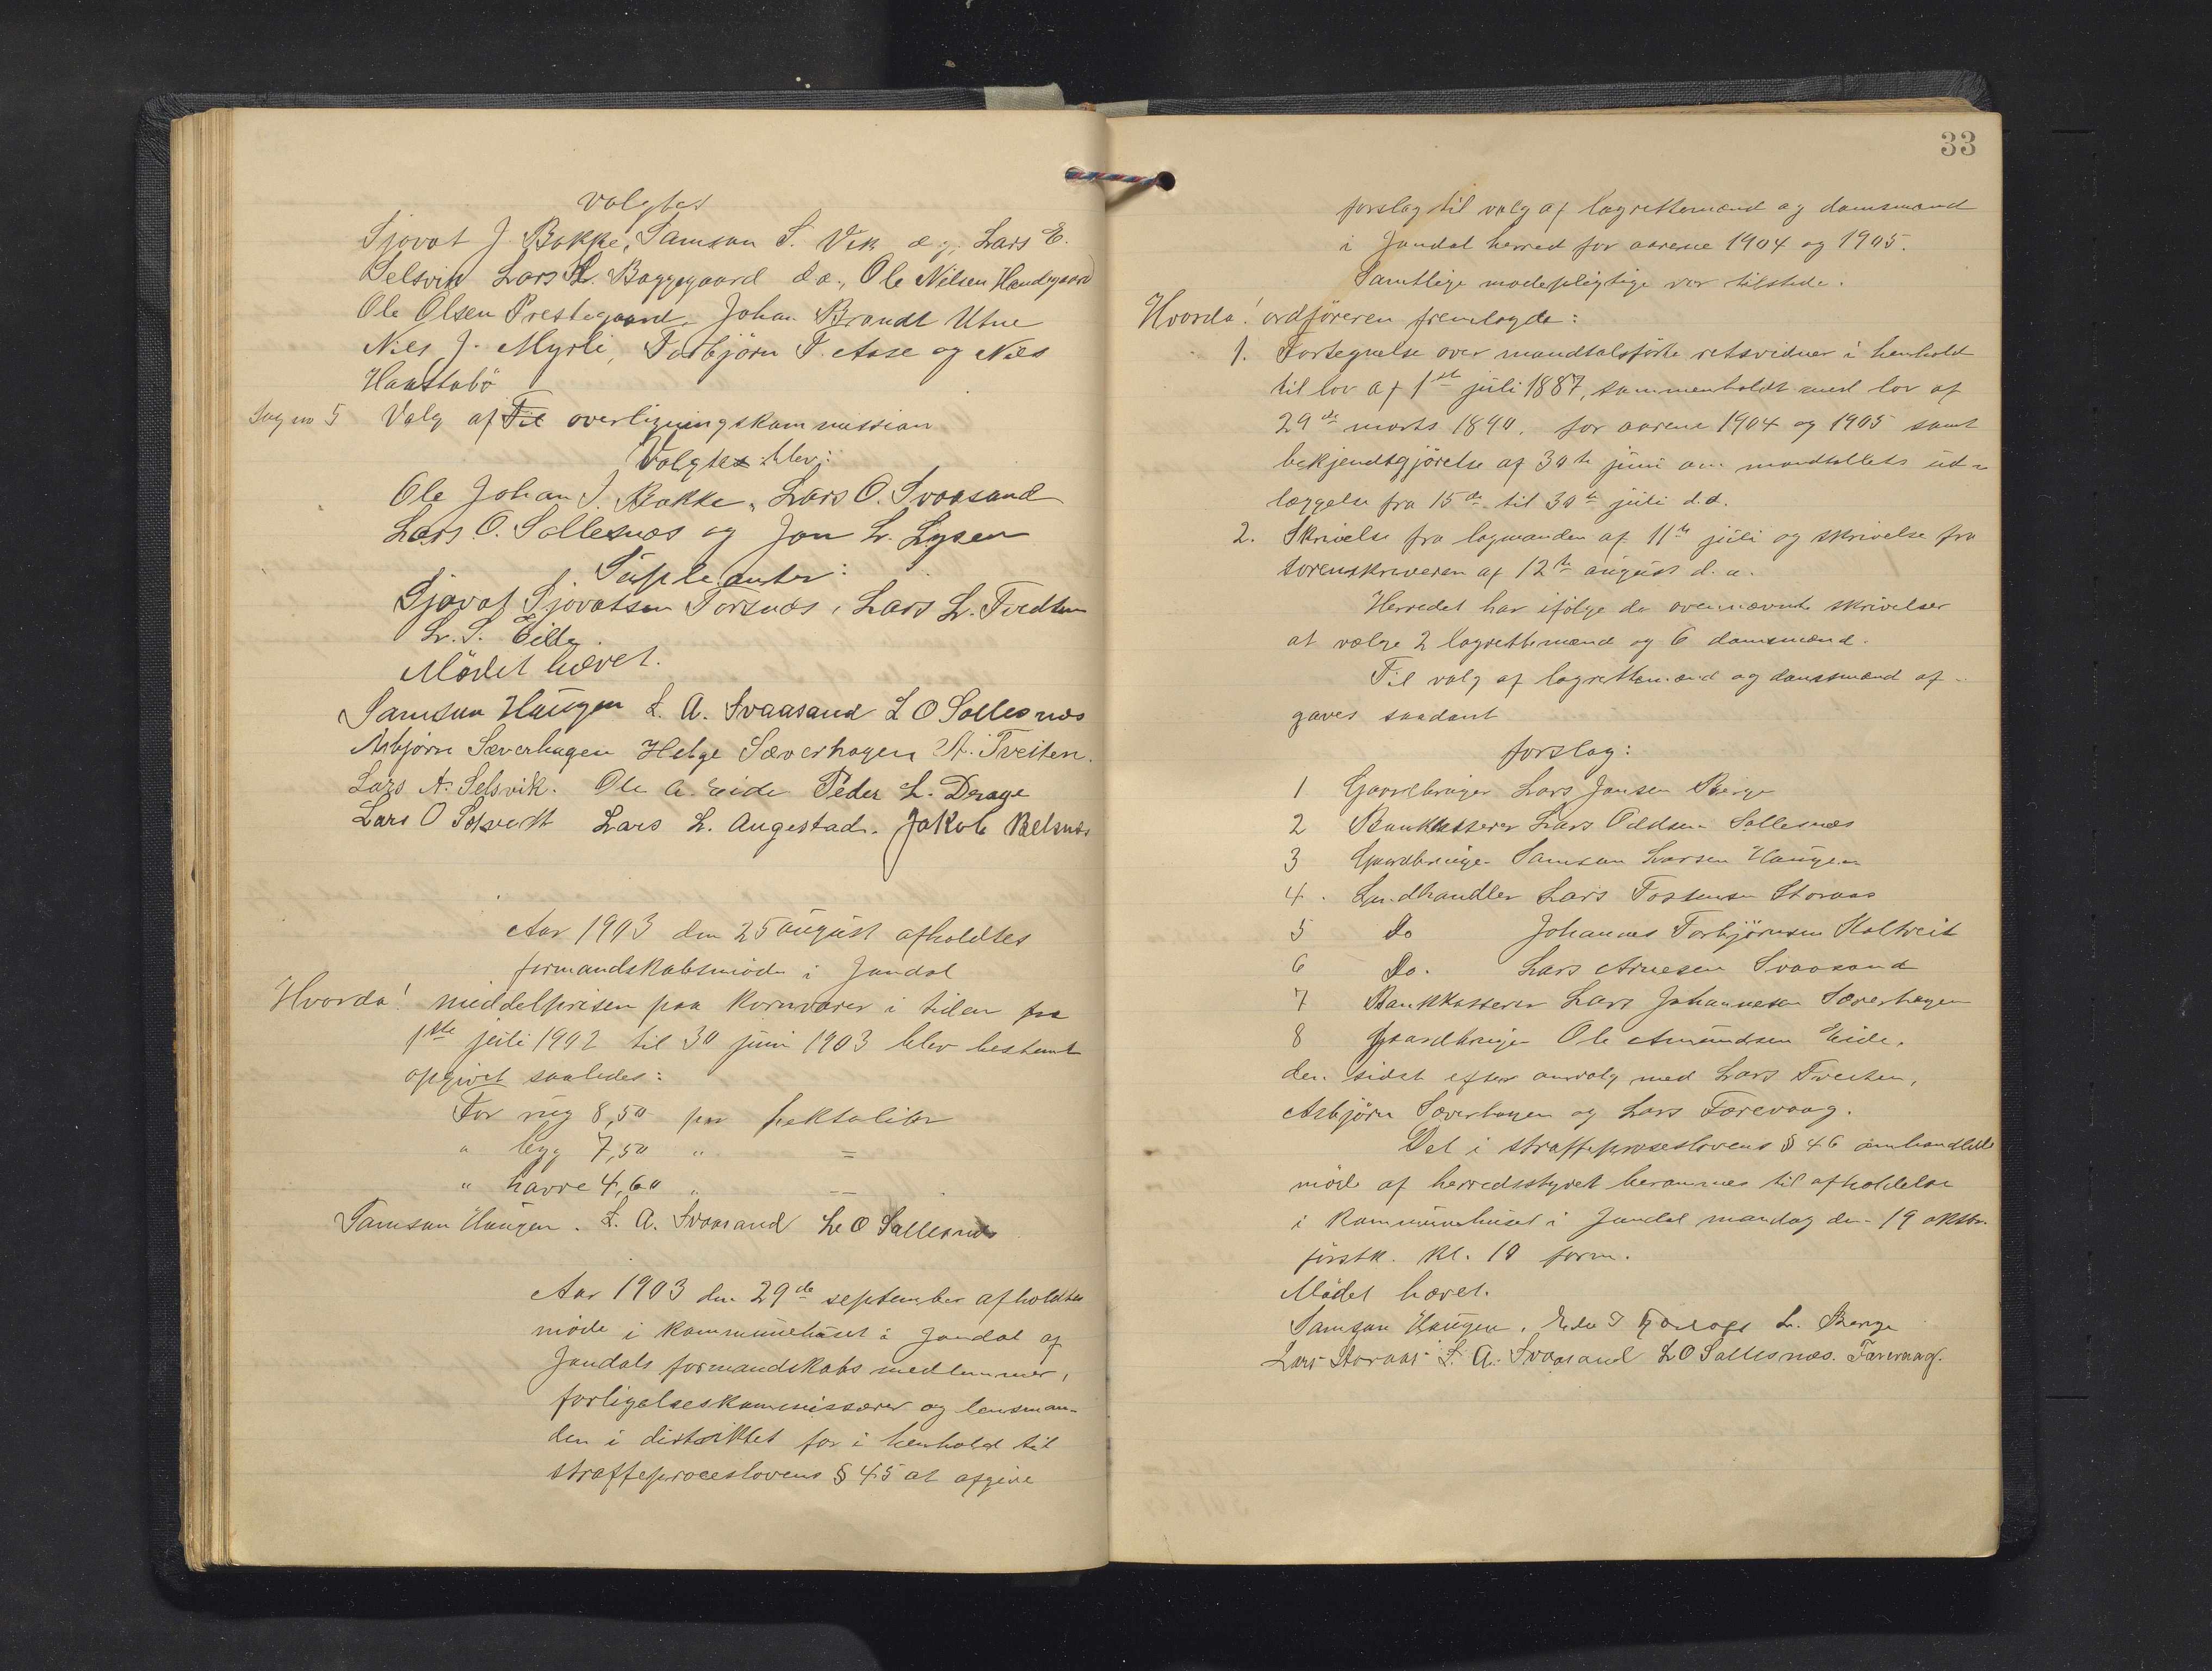 valgtes
Sjovat J. Bakke, Samson S. Vik æ., Lars E.
Selsvik Lars L. Baggegaard d. æ., Ole Nilsen Handegaard
Ole Olsen Prestegaard, Johan Brandt Utne
Nils J. Myrli, Torbjörn T. Aase og Nils
Haastabö
Sag no 5 Valg af Til overligningskommission
Valgtes blev:
Ole Johan J. Bakke, Lars O. Svaasand
Lars O. Sollesnæs og Jon L. Lysen
Supleanter:
Sjovat Sjovatsen Torsnæs, Lars L. Tvedten
L. S. Eide.
Mödet hævet.
Samson Haugen L. A. Svaasand L O Sollesnæs
Asbjörn Sæverhagen Helge Sæverhagen A. Tveiten.
Lars A. Selsvik. Ole A. Eide Peder L. Drage
Lars O Solsvedt Lars L. Augestad. Jakob Belsnæs
Aar 1903 den 25 august afholdtes
formandskabsmöde i Jondal
Hvorda! middelprisen paa kornvarer i tiden fra
1ste juli 1902 til 30 juni 1903 blev bestemt
opgivet saaledes:
For rug 8,50 per hektoliter
" byg 7,50 " =
" havre 4,60 " =
Samson Haugen. L. A. Svaasand L O Sollesnæs
Aar 1903 den 29de september afholdtes
möde i kommunehuset i Jondal af
Jondals formandskabs medlemmer,
forligelseskommissærer og lensman-
den i distriktet for i henhold til
straffeproceslovens § 45 at afgive
33
forslag til valg af lagrettemænd og domsmænd
i Jondal herred for aarene 1904 og 1905.
Samtlige mödepligtige var tilstede.
Hvorda! ordföreren fremlagde:
1. Fortegnelse over mandtalsförte retsvidner i henhold
til lov af 1ste juli 1887, sammenholdt med lov af
29de marts 1890. for aarene 1904 og 1905 samt
bekjendtgjörelse af 30te juni om mandtallets ud-
læggelse fra 15de til 30te juli d.d.
2. Skrivelse fra lagmanden af 11te juli og skrivelse fra
sorenskriveren af 12te august d. a.
Herredet har ifölge de ovennævnte skrivelser
at vælge 2 lagrettemænd og 6 domsmænd.
Til valg af lagrettemænd og domsmænd af-
gaves saadant
forslag:
1 Gaardbruger Lars Jonsen Berge
2 Bankkasserer Lars Oddsen Sollesnæs
3 Gaardbruger Samson Larsen Haugen
4. Landhandler Lars Torstensen Storaas
5 Do Johannes Torbjörnsen Koltveit
6 Do. Lars Arnesen Svaasand
7 Bankkasserer Lars Johannesen Sæverhagen
8 Gaardbruger Ole Amundsen Eide.
den sidste efter omvalg med Lars Tveiten,
Asbjörn Sæverhagen og Lars Torevaag.
Det i straffeproseslovens § 46 omhandlede
möde af herredsstyret berammes til afholdelse
i kommunehuset i Jondal mandag den 19 oktbr.
förstk. kl. 10 form.
Mödet hævet.
Samson Haugen. L. Berge
Lars Storaas L. A. Svaasand L O Sollesnæs. Torevaag.